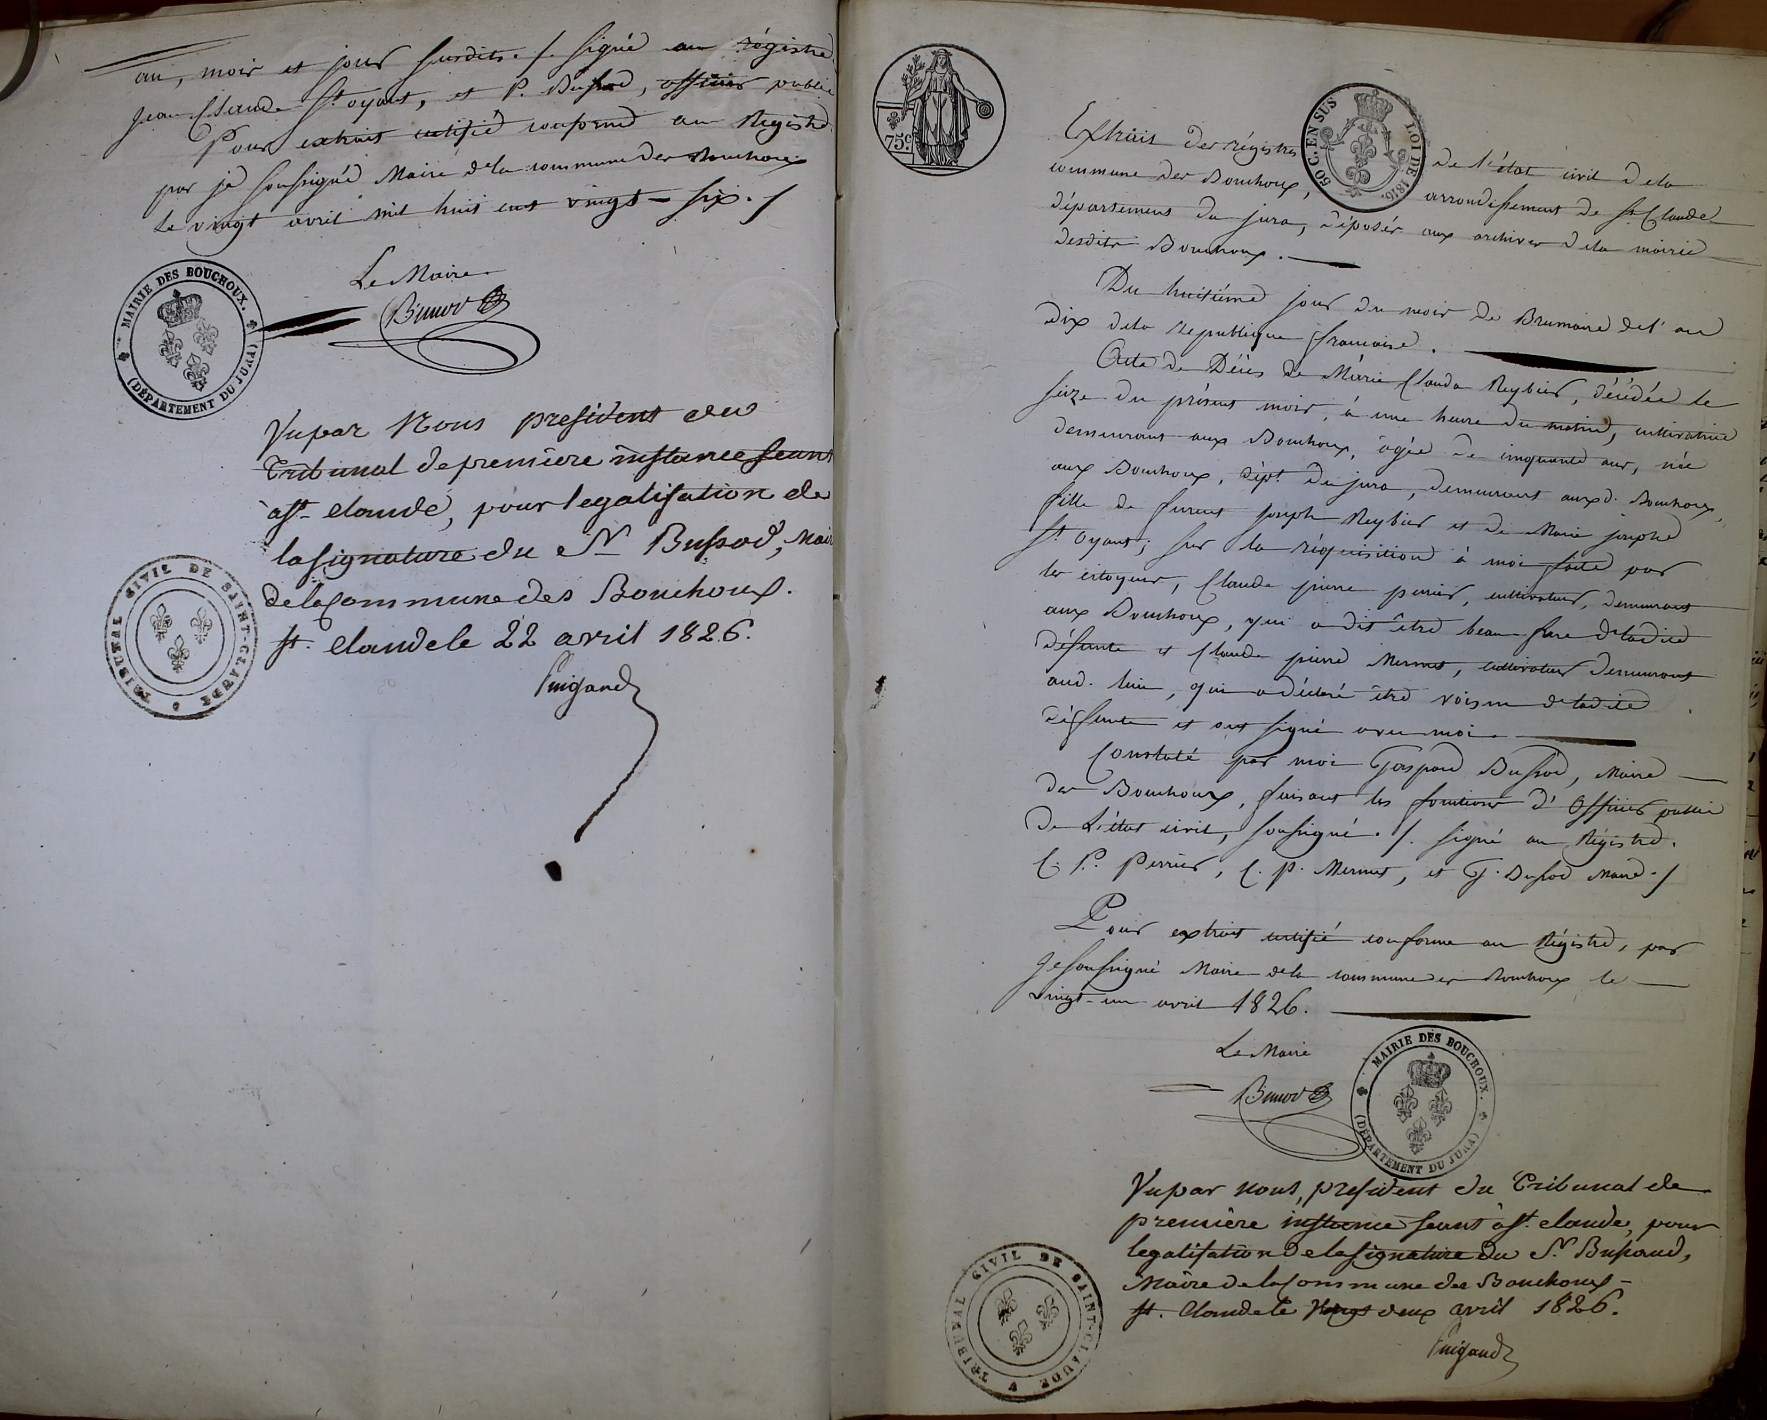 an, mois et jour susdits ./. signé au régistre
Jean Claude St oyant, et P. Bussod, officier public
Pour extrait certifié conforme au Régistre
par je soussigné Maire de la commune des Bouchoux
Le vingt avril mil huit cent vingt-six ./
Le Maire
MAIRIE DES BOUCHOUX.
(DÉPARTEMENT DU JURA)
Vu par Nous president du
Tribunal de premiere instance seant
à St. Claude, pour legalisation de
la signature du Sr Bussod, Mair
de la Commune des Bouchoux.
St. Claude le 22 avril 1826.
TRIBUNAL CIVIL DE SAINT-CLAUDE
75c.
50 C. EN SUS
LOI DE 1816
Extrait des régistres de l'état civil de la
commune des Bouchoux, arrondissement de St Claude
département du jura, déposés aux archives de la mairie
desdits Bouchoux.
Du huitième jour du mois de Brumaire de l'an
dix de la République française.
Acte de Décès de Marie Claude Reybier, décédée le
seize du présent mois, à une heure du matin, cultivatrice
demeurant aux Bouchoux, âgée de cinquante ans, née
aux Bouchoux, dépt. du jura, demeurant auxd. Bouchoux,
fille de furent joseph Reybier et de Marie josephe
St Oyant; sur la réquisition à moi faite par
les citoyens, Claude pierre perrier, cultivateur, demeurant
aux Bouchoux, qui a dit être beau frere de ladite
défunte et Claude pierre Mermet, cultivateur demeurant
aud. lieu, qui a déclaré être voisin de ladite
défunte et ont signé avec moi.
Constaté par moi Gaspard Bussod, Maire
des Bouchoux, faisant les fonctions d'Officier public
de L'état civil, soussigné ./. signé au Régistre.
C. P. Perrier, C. P. Mermet, et G. Bussod Maire ./
Pour extrait certifié conforme au Régistre, par
Je soussigné Maire de la commune des Bouchoux le
vingt-un avril 1826.
Le Maire
MAIRIE DES BOUCHOUX.
(DÉPARTEMENT DU JURA)
Vu par nous, president du Tribunal de
première instance seant à St. claude, pour
legalisation de la signature du Sr. Bussaud,
Maire de la Commune des Bouchoux-
St. Claude le vingt deux avril 1826.
TRIBUNAL CIVIL DE SAINT-CLAUDE